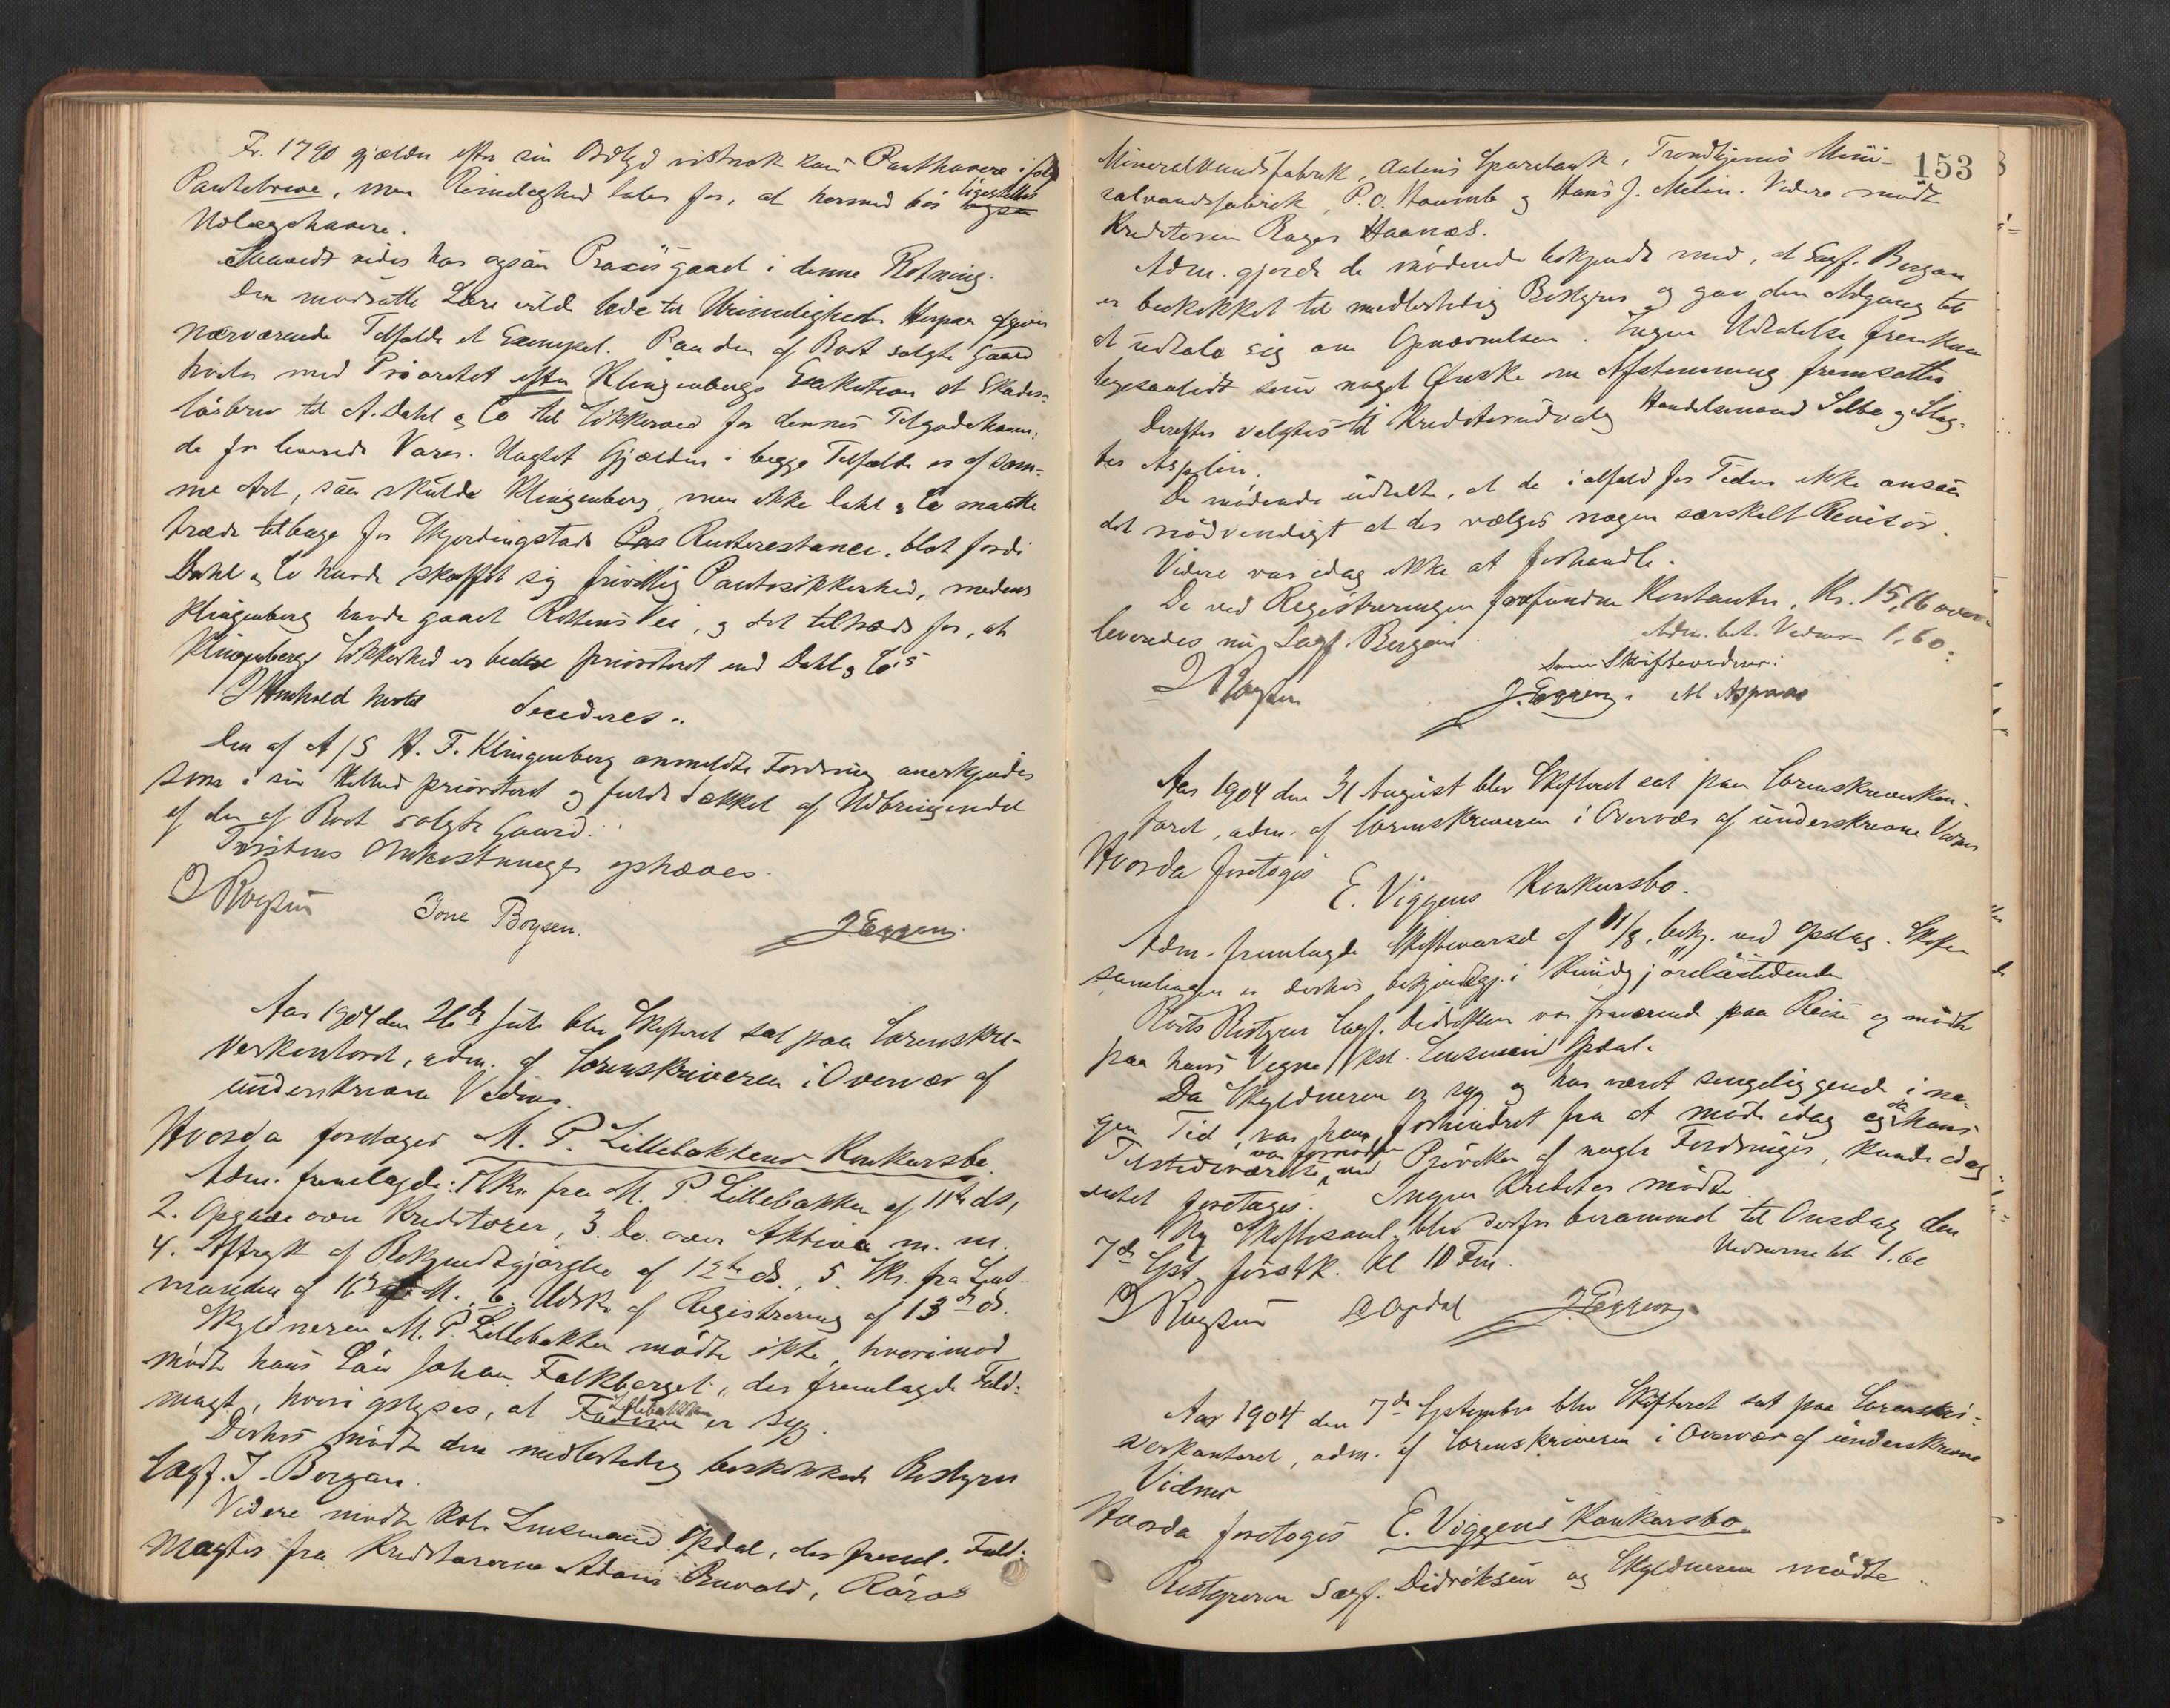 Fr. 1790 gjælder efter sin Ordlyd vistnok kun Panthavere ifølge
Pantebreve, men Rimelighed taler for, at hermed bør ligestilles
Udlægshavere.
Saavidt vides har ogsaa Praxis gaaet i denne Retning.
Den modsatte Lære vilde lede til Urimeligheder. Herpaa afgiver
nærværende Tilfælde et Exempel. Paa den af Boet solgte Gaard
hviler med Prioritet efter Klingenbergs Exekution et Skades-
løsbrev til A. Dahl & Co til Sikkerhed for dennes Tilgodehaven-
de for leverede Varer. Uagtet Gjælden i begge Tilfælde er af sam-
me Art, saa skulde Klingenberg, men ikke Dahl & Co maatte
træde tilbage for Skjerdingstads Renterestance, blot fordi
Dahl & Co havde skaffet sig frivillig Pantesikkerhed, medens
Klingenberg havde gaaet Rettens Vei, og det tiltrods for, at
Klingenbergs Sikkerhed er bedre prioriteret end Dahl & Co's
I Henhold hertil
decideres:
Den af A/S H. F. Klingenberg anmeldte Fordring anerkjendes
som i sin Helhed prioriteret og fuldt dækket af Udbringendet
af den af Boet solgte Gaard.
Tvistens Omkostninger ophæves.
Tore Boysen. J. Eggen.
Aar 1904 den 26de Juli blev Skifteret sat paa Sorenskri-
verkontoret, adm. af Sorenskriveren i Overvær af
underskrevne Vidner.
Hvorda foretoges M. P. Lillebakkens Konkursbo.
Adm. fremlagde: 1 Skr. fra M. P. Lillebakken af 11te ds,
2. Opgave over Kreditorer, 3. Do. over Aktiva m. m.
4. Aftryk af Bekjendtgjørelse af 12te ds., 5. Skr. fra Lens-
manden af M., 6. Udskr. af Registrering af 13de ds.
Skyldneren M. P. Lillebakken mødte ikke, hvorimod
mødte hans Søn Johan Falkberget, der fremlagde Fuld-
magt, hvori oplyses, at Lillebakken er syg.
Derhos mødte den midlertidig beskikkede Bestyrer
Sagf. I. Bergan.
Videre mødte Kst. Lensmand Opdal, der freml. Fuld-
magter fra Kreditorerne Adam Buvald, Røros
153
Mineralvandsfabrik, Aalens Sparebank, Trondhjems Mine-
ralvandsfabrik, P. O. Haumb og Hans J. Melin. Videre mødte
Kreditoren Roger Haanæs.
Adm. gjorde de mødende bekjendt med, at Sagf. Bergan
er beskikket til midlertidig Bestyrer og gav dem Adgang til
at udtale sig om Opnævnelsen. Ingen Udtalelse fremkom
ligesaalidt som noget Ønske om Afstemning fremsattes.
Derefter valgtes til Kreditorudvalg Handelsmand Selbo og Slag-
ter Asplin.
De mødende udtalte, at de ialfald for Tiden ikke ansaa
det nødvendigt at der vælges nogen særskilt Revisor.
Videre var idag ikke at forhandle.
De ved Registreringen forefundne Kontanter, Kr. 15,16 over-
leveredes nu Sagf. Bergan.
Adm. bet. Vidnerne 1.60.
Som Skiftevidner:
J. Eggen. M Aspaas
Aar 1904 den 31 August blev Skifteret sat paa Sorenskriverkon-
toret, adm. af Sorenskriveren i Overvær af underskrevne Vidner
Hvorda foretoges
E. Viggens Konkursbo.
Adm. fremlagde Skiftevarsel af 11/8, bekj. ved Opslag. Skifte-
samlingen er derhos bekjendtgj. i Kundgjørelsestidende
Boets Bestyrer Sagf. Didriksen var fraværende paa Reise og mødte
paa hans Vegne kst. Lensmand Opdal.
Da Skyldneren er syg og har været sengeliggende i no-
gen Tid, var han forhindret fra at møde idag og da hans
Tilstedeværelse var fornøden ved Prøvelse af nogle Fordringer, kunde idag
intet foretages. Ingen Kreditor mødte.
Ny Skiftesaml. blev derfor berammet til Onsdag den
7de Spt. førstk. Kl 10 Fm.
Vidnerne bet. 1.60
O Opdal J. Eggen
Aar 1904 den 7de September blev Skifteret sat paa Sorenskri-
verkontoret, adm. af Sorenskriveren i Overvær af underskrevne
Vidner
Hvorda foretoges E. Viggens Konkursbo.
Bestyreren Sagf. Didriksen og Skyldneren mødte.